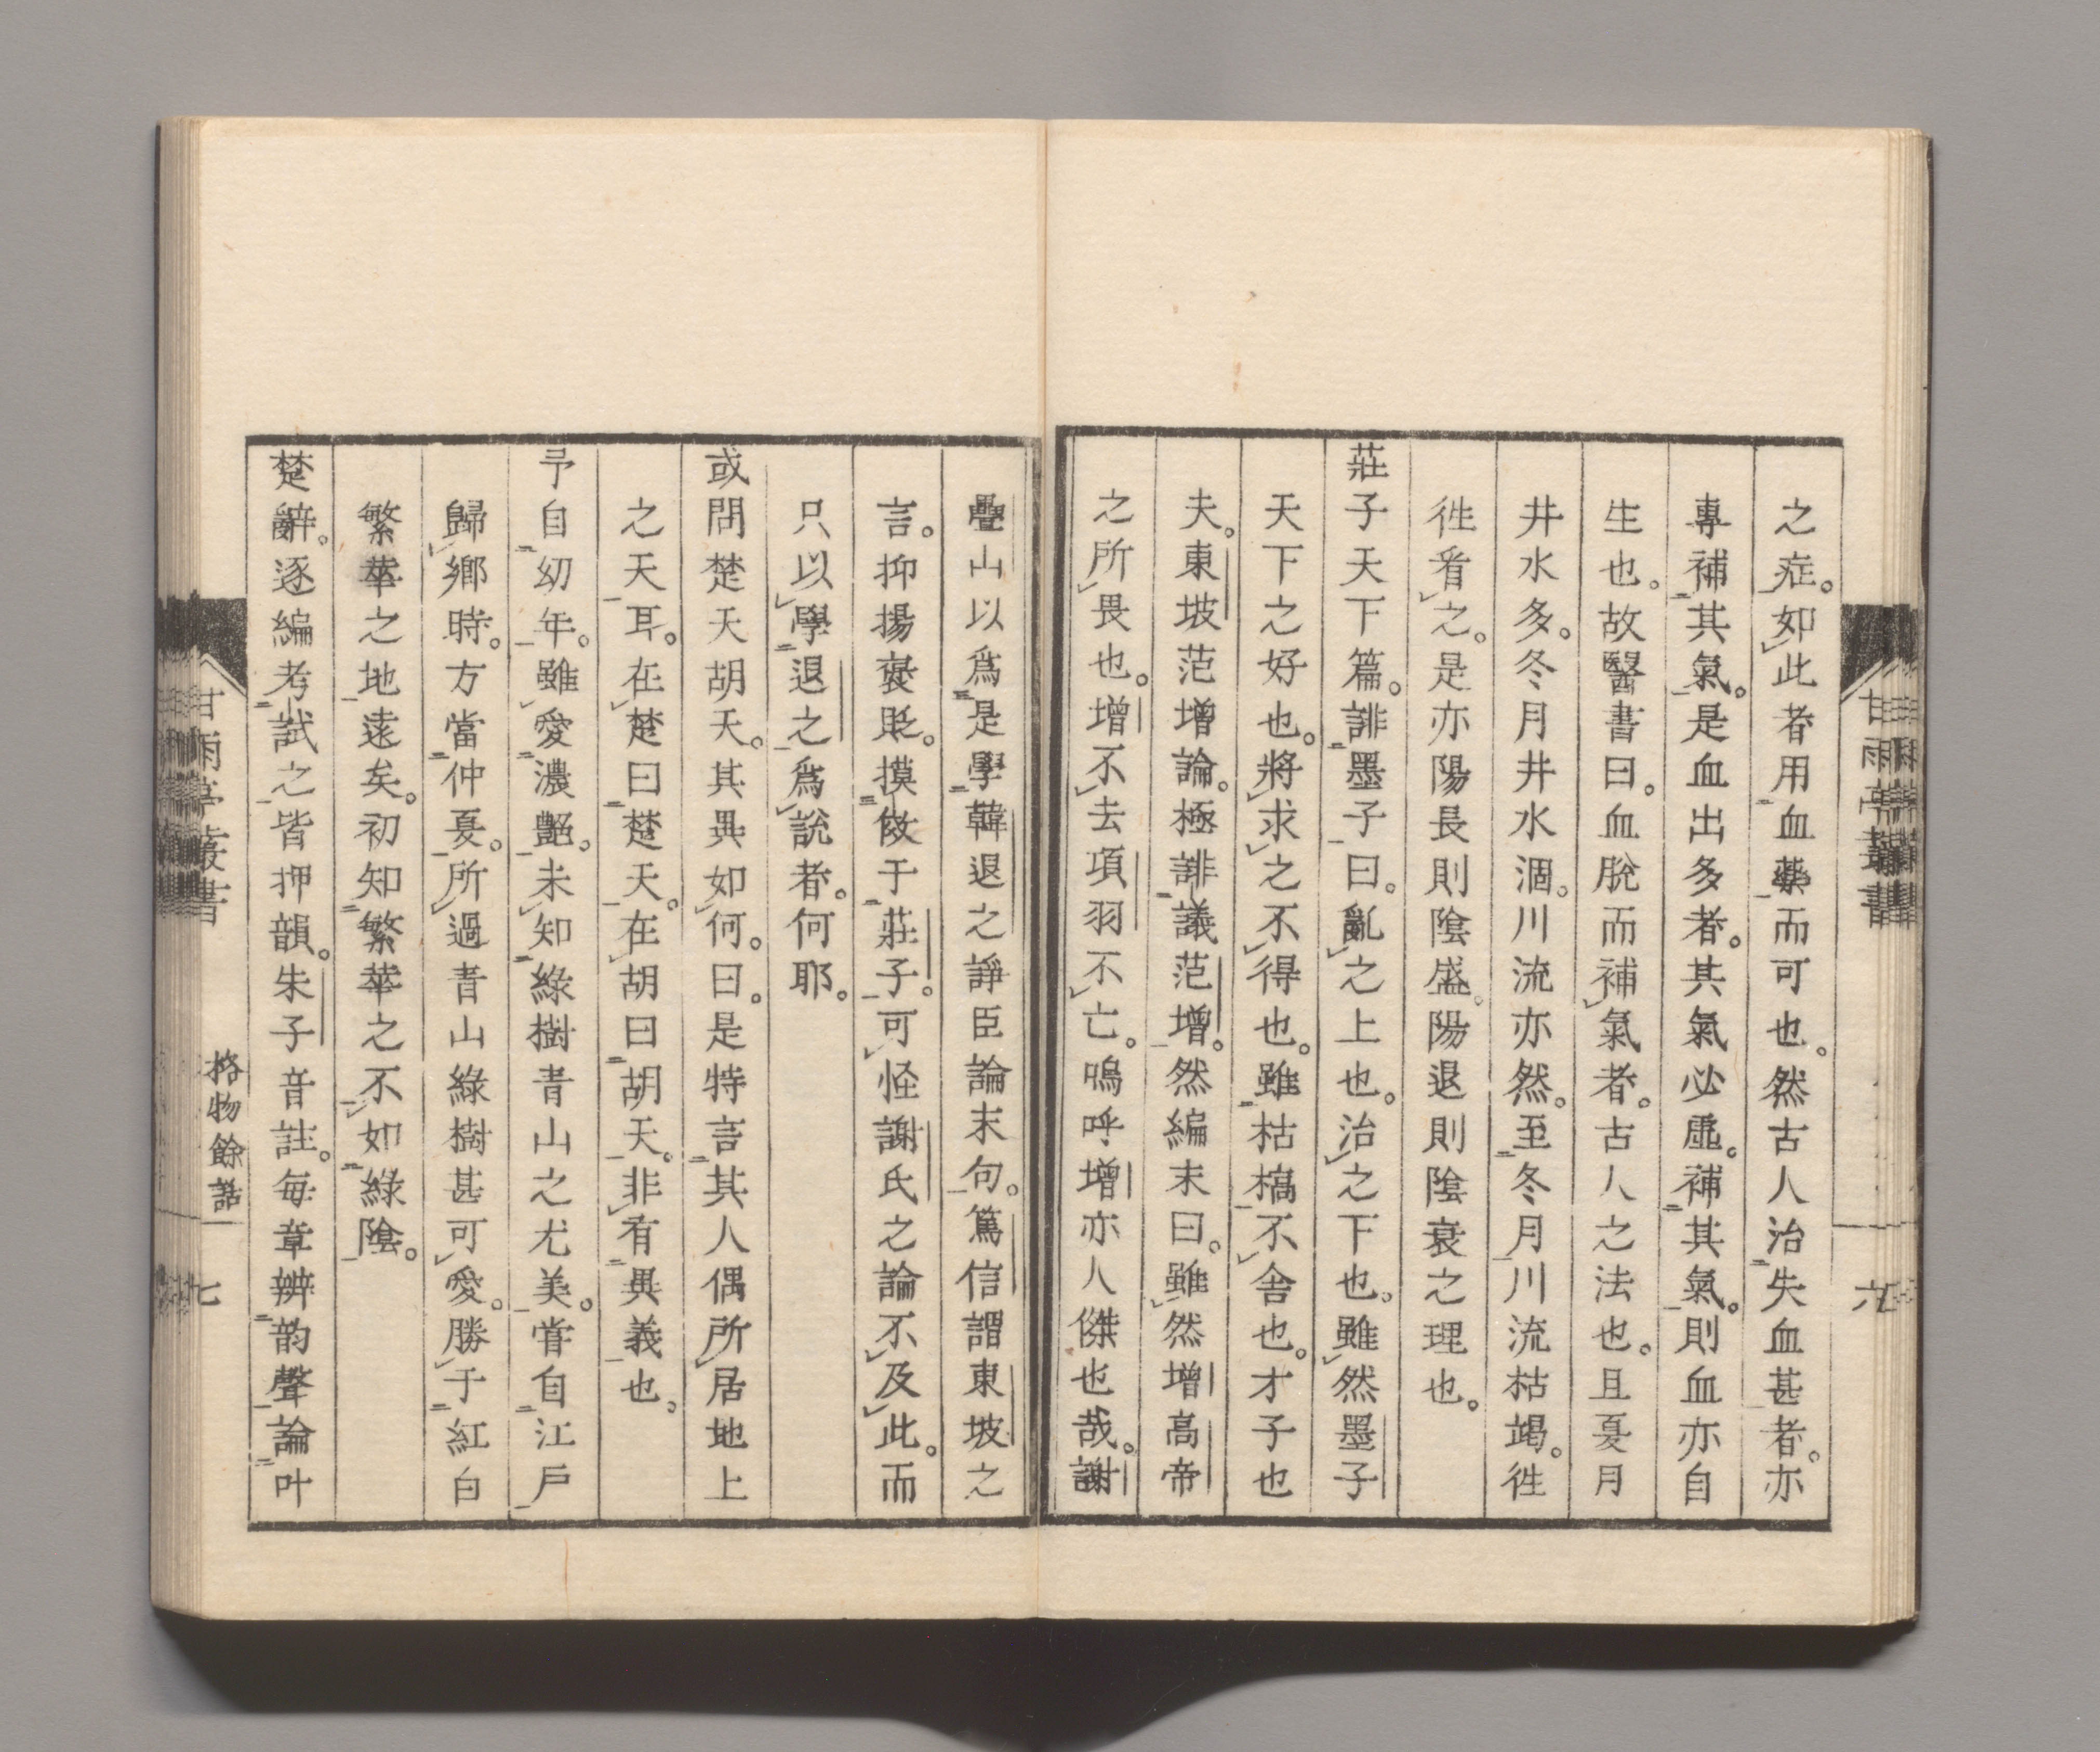 之症。如此者用血藥而可也。然古人治失血甚者。亦
專補其氣。是血出多者。其氣必虛。補其氣。則血亦自
生也。故醫書曰。血脫而補氣者。古人之法也。且夏月
井水多。冬月井水涸。川流亦然。至冬月川流枯竭。徃
徃看之。是亦陽長則陰盛。陽退則陰衰之理也。
莊子天下篇。誹墨子曰。亂之上也。治之下也。雖然墨子
天下之好也。將求之不得也。雖枯槁不舍也。才子也
夫。東坡范增論。極誹議范增。然編末曰。雖然增高帝
之所畏也。增不去項羽不亡。嗚呼增亦人傑也哉。謝
疊山以爲是學韓退之諍臣論末句。篤信謂東坡之
言。抑揚褒貶。摸倣于莊子。可怪謝氏之論不及此。而
只以學退之爲說者。何耶。
或問楚天胡天。其異如何。曰。是特言其人偶所居地上
之天耳。在楚曰楚天。在胡曰胡天。非有異義也。
予自幼年。雖愛濃艷。未知綠樹青山之尤美。甞自江戶
歸鄉時。方當仲夏。所過青山綠樹甚可愛。勝于紅白
繁華之地遠矣。初知繁華之不如綠陰。
楚辭。逐編考試之皆押韻。朱子音註。每章辨韵聲論叶
甘雨亭叢書
格物餘話
七
甘雨亭叢書
六